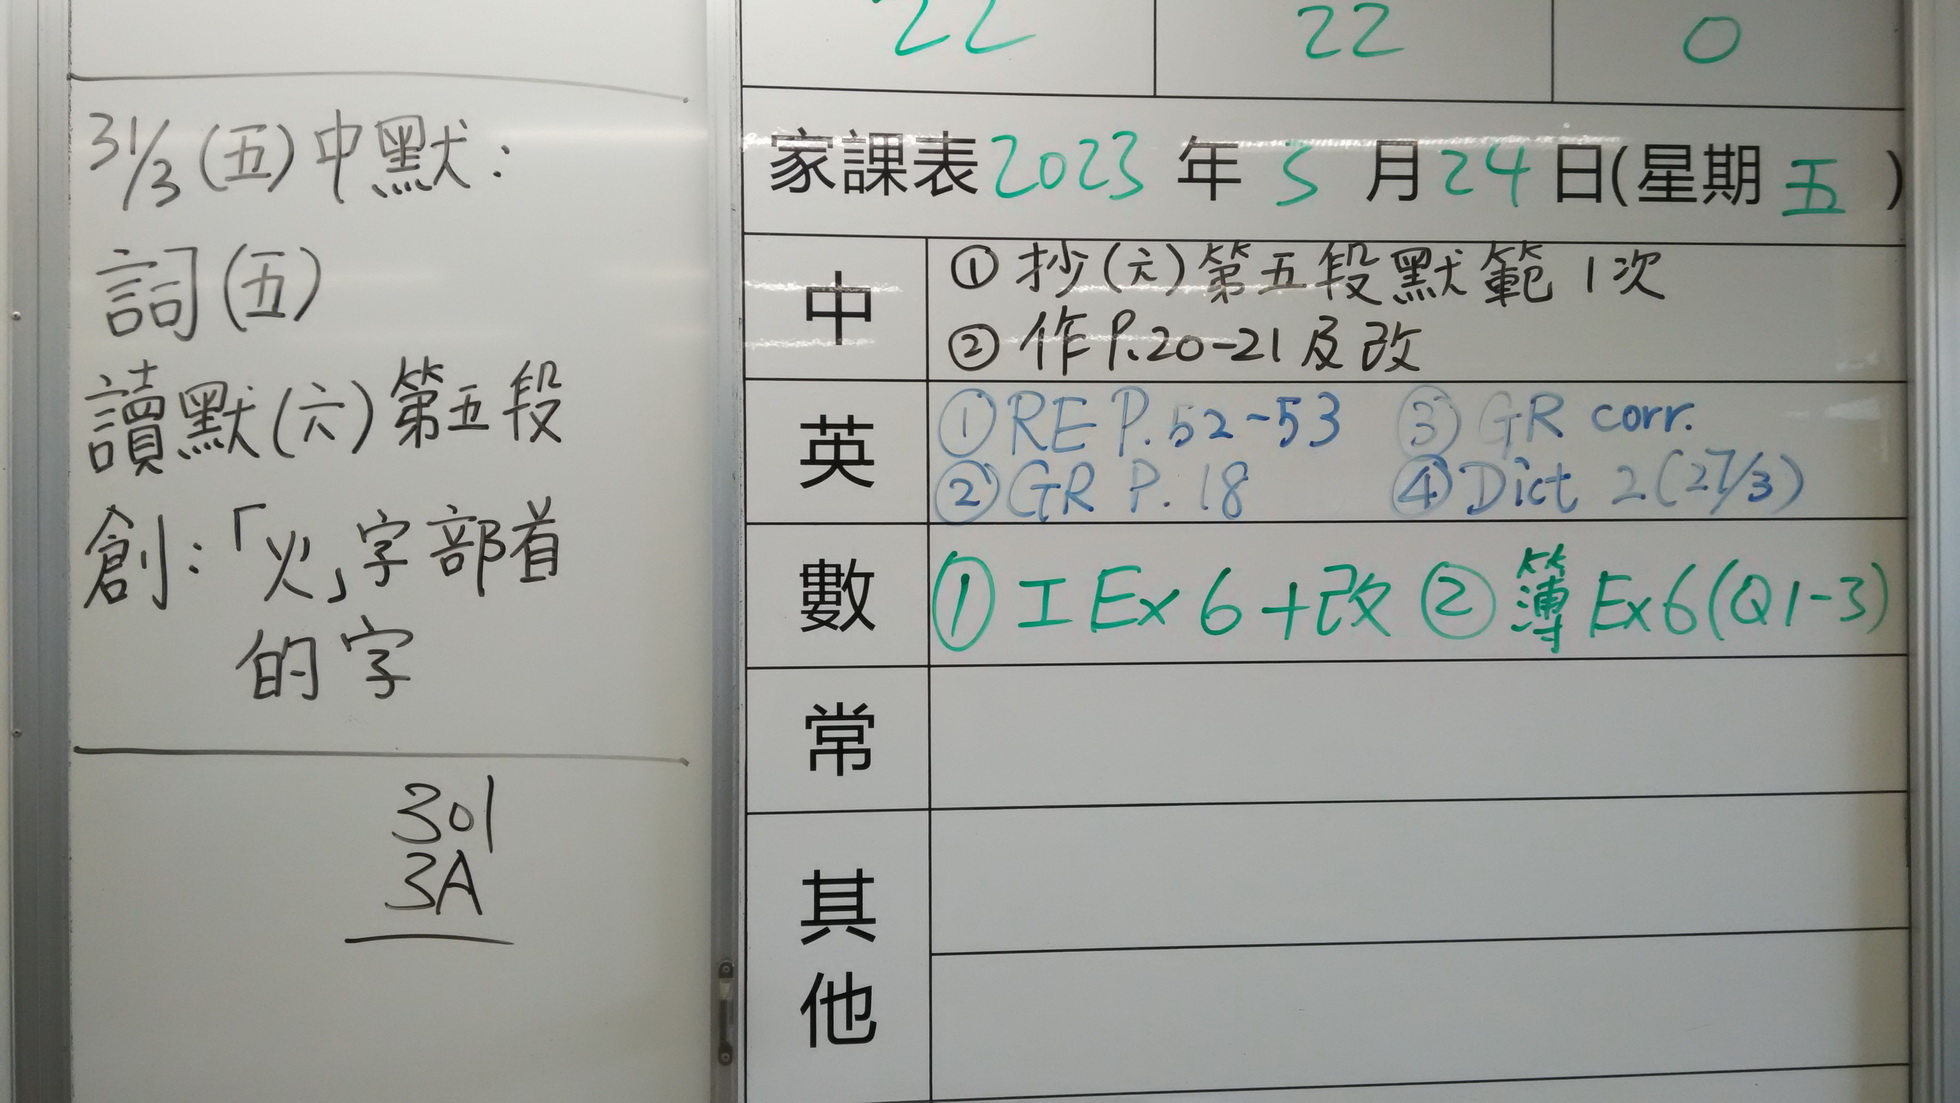 31/3 (五) 中默：
詞(五)
讀默(六)第五段
創：「火」字部首
的字
301
3A
22 22 0
家課表 2023 年 3 月 24 日(星期 五 )
中
① 抄(六)第五段默範 1次
② 作P.20-21及改
英
① RE P.52-53 ③ GR corr.
② GR P.18 ④ Dict 2(27/3)
數
① 工 Ex 6 + 改 ② 簿 Ex 6 (Q1-3)
常
其
他